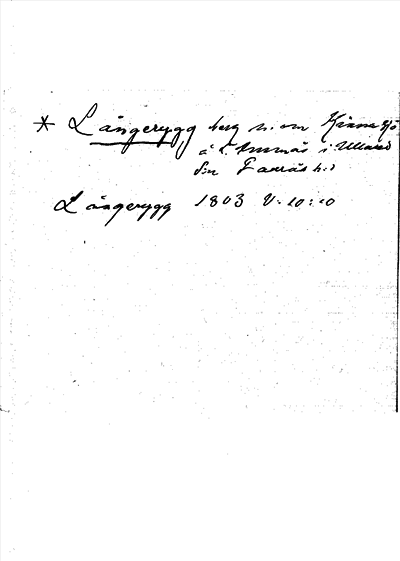 * Långerygg berg n. om Kinnasjö
å L. Ammås i Ullared
sn Faurås hd
Långerygg 1803 V. 10:10